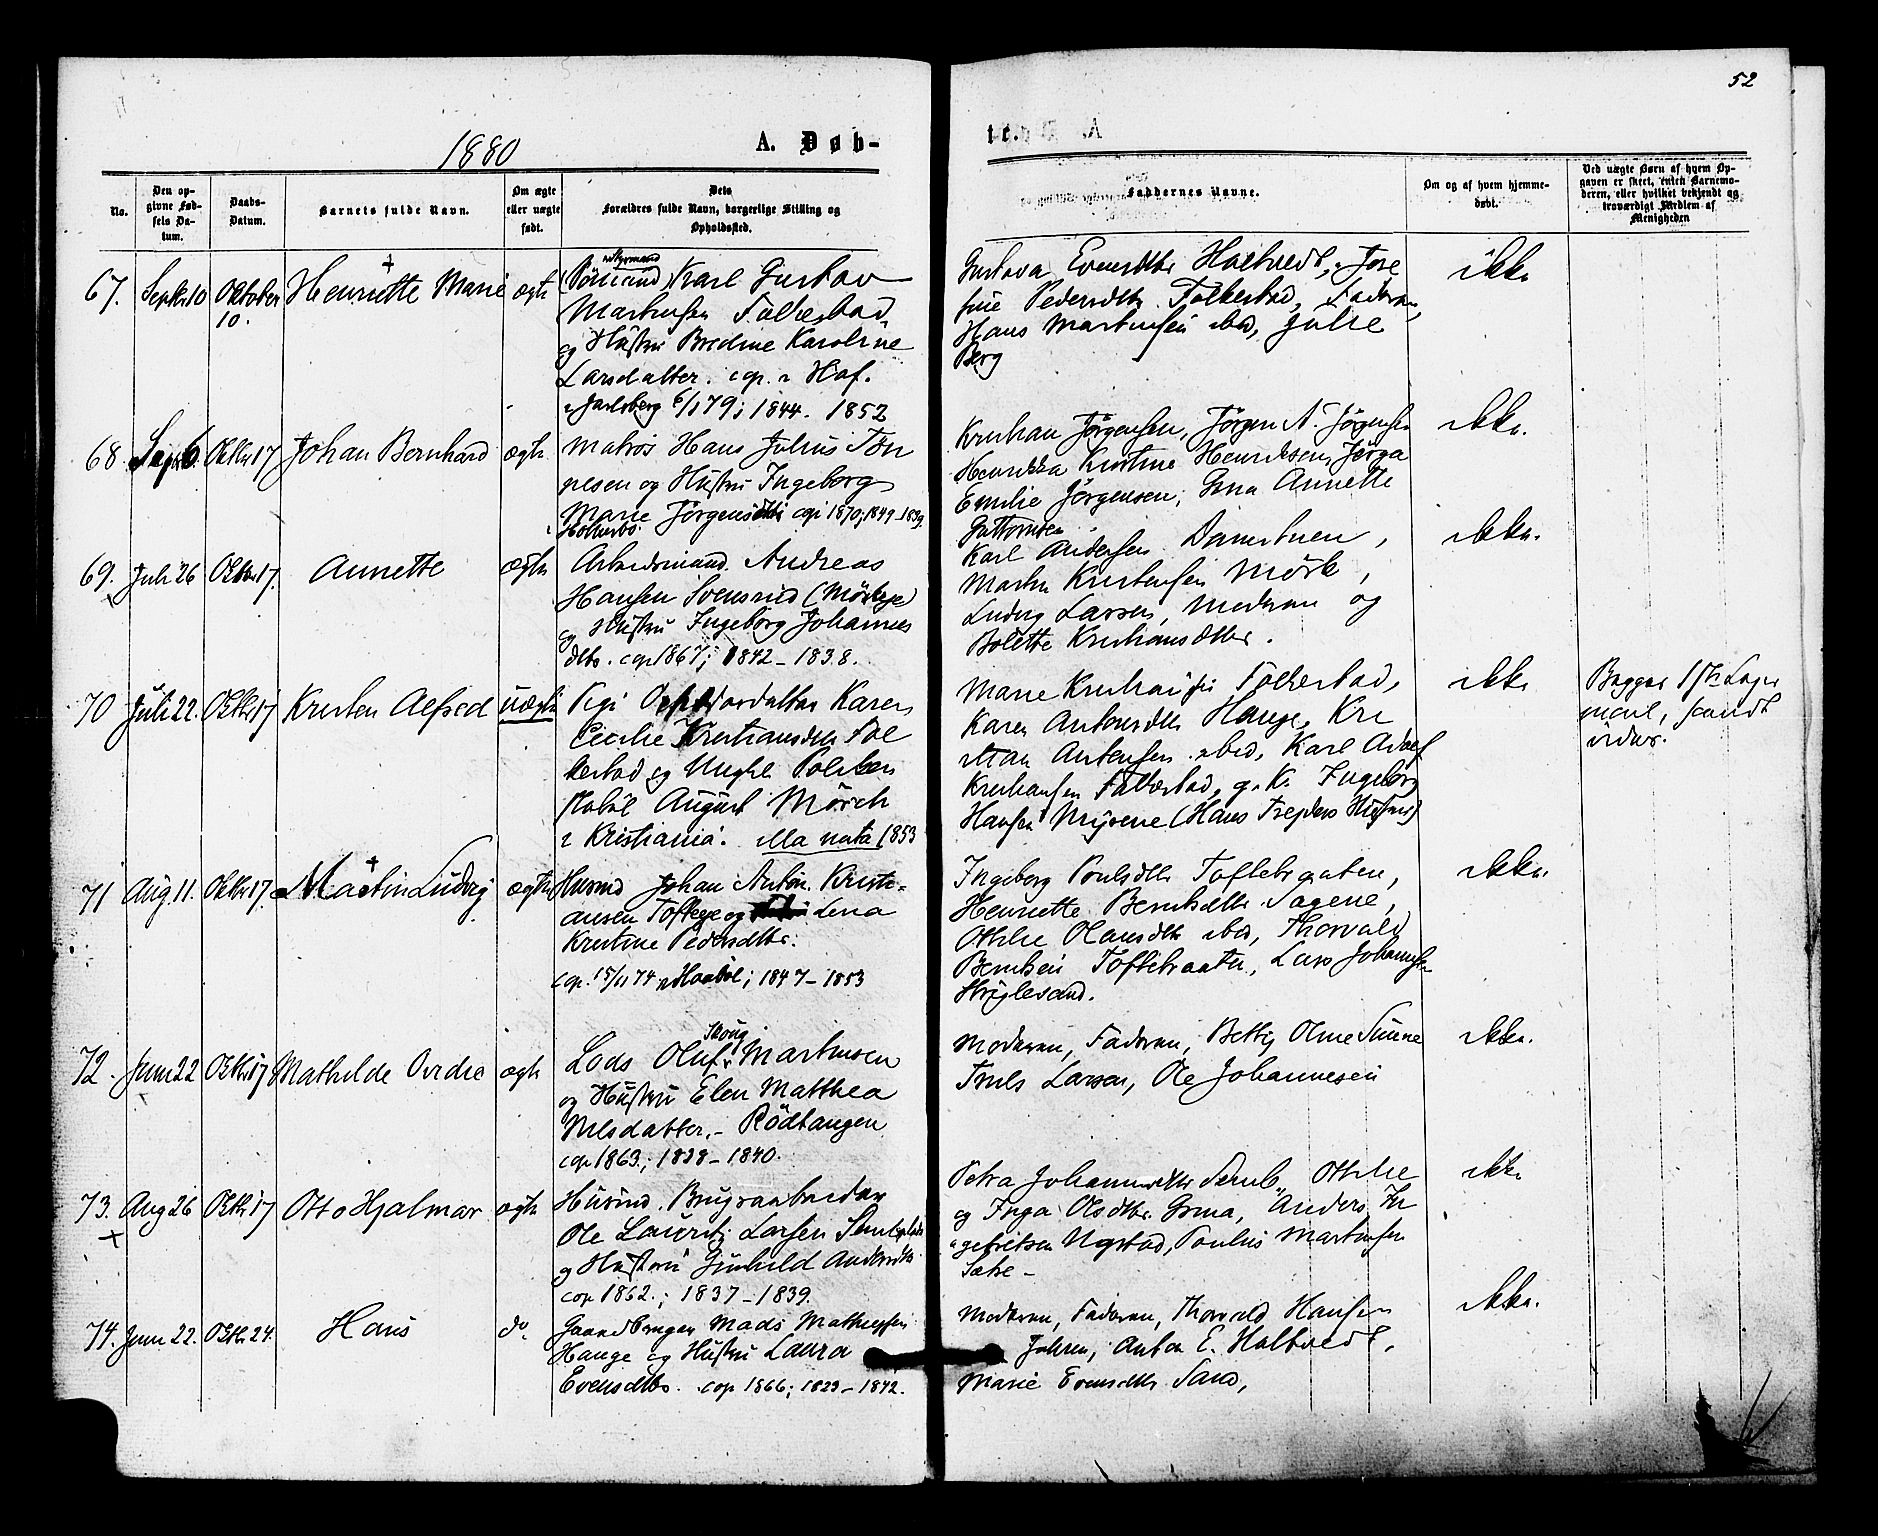 52
1880
A. Døb-
No.
Den op-
givne Fød-
sels Da-
tum.
Daabs-
Datum.
Barnets fulde Navn.
Om ægte
eller uægte
født.
Dets
Forældres fulde Navn, borgerlige Stilling og
Opholdssted.
Faddernes Navne.
Om og af hvem hjemme-
døbt.
Ved uægte Børn af hvem Op-
gaven er skeet, enten Barnemo-
deren, eller hvilket bekjendt og
troværdigt Medlem af
Menigheden
67. Septbr 10 Oktober
10. Henriette Marie ægte
Karl Gustav
Martinsen Folkestad
og Hustru Bredine Karoline
Larsdatter. cop. i Hof.
i Jarlsberg 6/1 79; 1844. 1852
Gustava Evensdtr Holtvedt, Jose
fine Pedersdtr Folkestad, Faderen,
Hans Martinsen ibid, Julie
Berg
ikke
68 Septbr 6. Oktbr 17 Johan Bernhard ægte
Matros Hans Julius Tøn
nesen og Hustru Ingeborg
Marie Jørgensdtr cop 1870; 1849-1839.
Holtebro.
Kristian Jørgensen, Jørgen A. Jørgensen
Henrikka Kristine Henriksen, Jørga
Emilie Jørgensen, Gina Annette
Guttormsen
ikke.
69. Juli 26 Oktbr 17. Annette ægte
Arbeidsmand Andreas
Hansen Svensrud (Mørkeje)
og Hustru Ingeborg Johannes
dtr. cop 1867; 1842-1838.
Karl Andersen Damstuen,
Martin Kristensen Mørk,
Ludvig Larsen, Moderen og
Bolette Kristiansdtr.
ikke.
70 Juli 22. Oktbr 17 Kristen Alfred uægte
Pige Karen
Cecilie Kristiansdtr Fol
kestad og Ungkl
August Mørch
i Kristiania. illa nata 1853
Marie Kristiansen Folkestad,
Karen Antonsdtr Hauge, Kri
stian Antonsen ibid, Karl Adolf
Kristiansen Folkestad, g. K. Ingeborg
Hansen Myrene (Hans Hustru)
ikke
71 Aug. 11. Oktbr 17. Martin Ludvig ægte
Husmd Johan Anton Kristi-
ansen Tofteje og Lena
Kristine Pedersdtr.
cop. 15/11 74 i 1847-1853
Ingeborg Poulsdtr Toftebraaten,
Henriette Berntsdtr Sagene,
Othilie Olausdtr ibid, Thorvald
Berntsen Toftebraaten, Lars Johannesen
ikke.
72. Juni 22 Oktbr 17 Mathilde Ovidie ægte
Skoug
Lods Oluf Martinsen
og Hustru Elen Matthea
Nilsdatter. - Rødtangen
cop 1863; 1838-1840.
Moderen, Faderen, Betty Oline
Truls Larsen, Ole Johannesen
ikke.
73. Aug 26 Oktbr 17 Otto Hjalmar ægte
Husmd. Brugsarbeider
Ole Laurits Larsen
og Hustru Gunhild Andersdtr
cop 1862.; 1837-1839.
Petra Johannesdtr Othilie
og Inga Olsdtr Grina, Anders In
gebretsen Ugstad, Paulus Martinsen
Sætre-
ikke
74. Juni 22. Oktbr 24. Hans do
Gaardbruger Mads Mathiesen
Hauge og Hustru Laura
Evensdtr. cop 1866; 1829-1842.
Moderen, Faderen, Thorvald Hansen
Anton E. Holtvedt,
Marie Evensdtr Sand,
ikke.